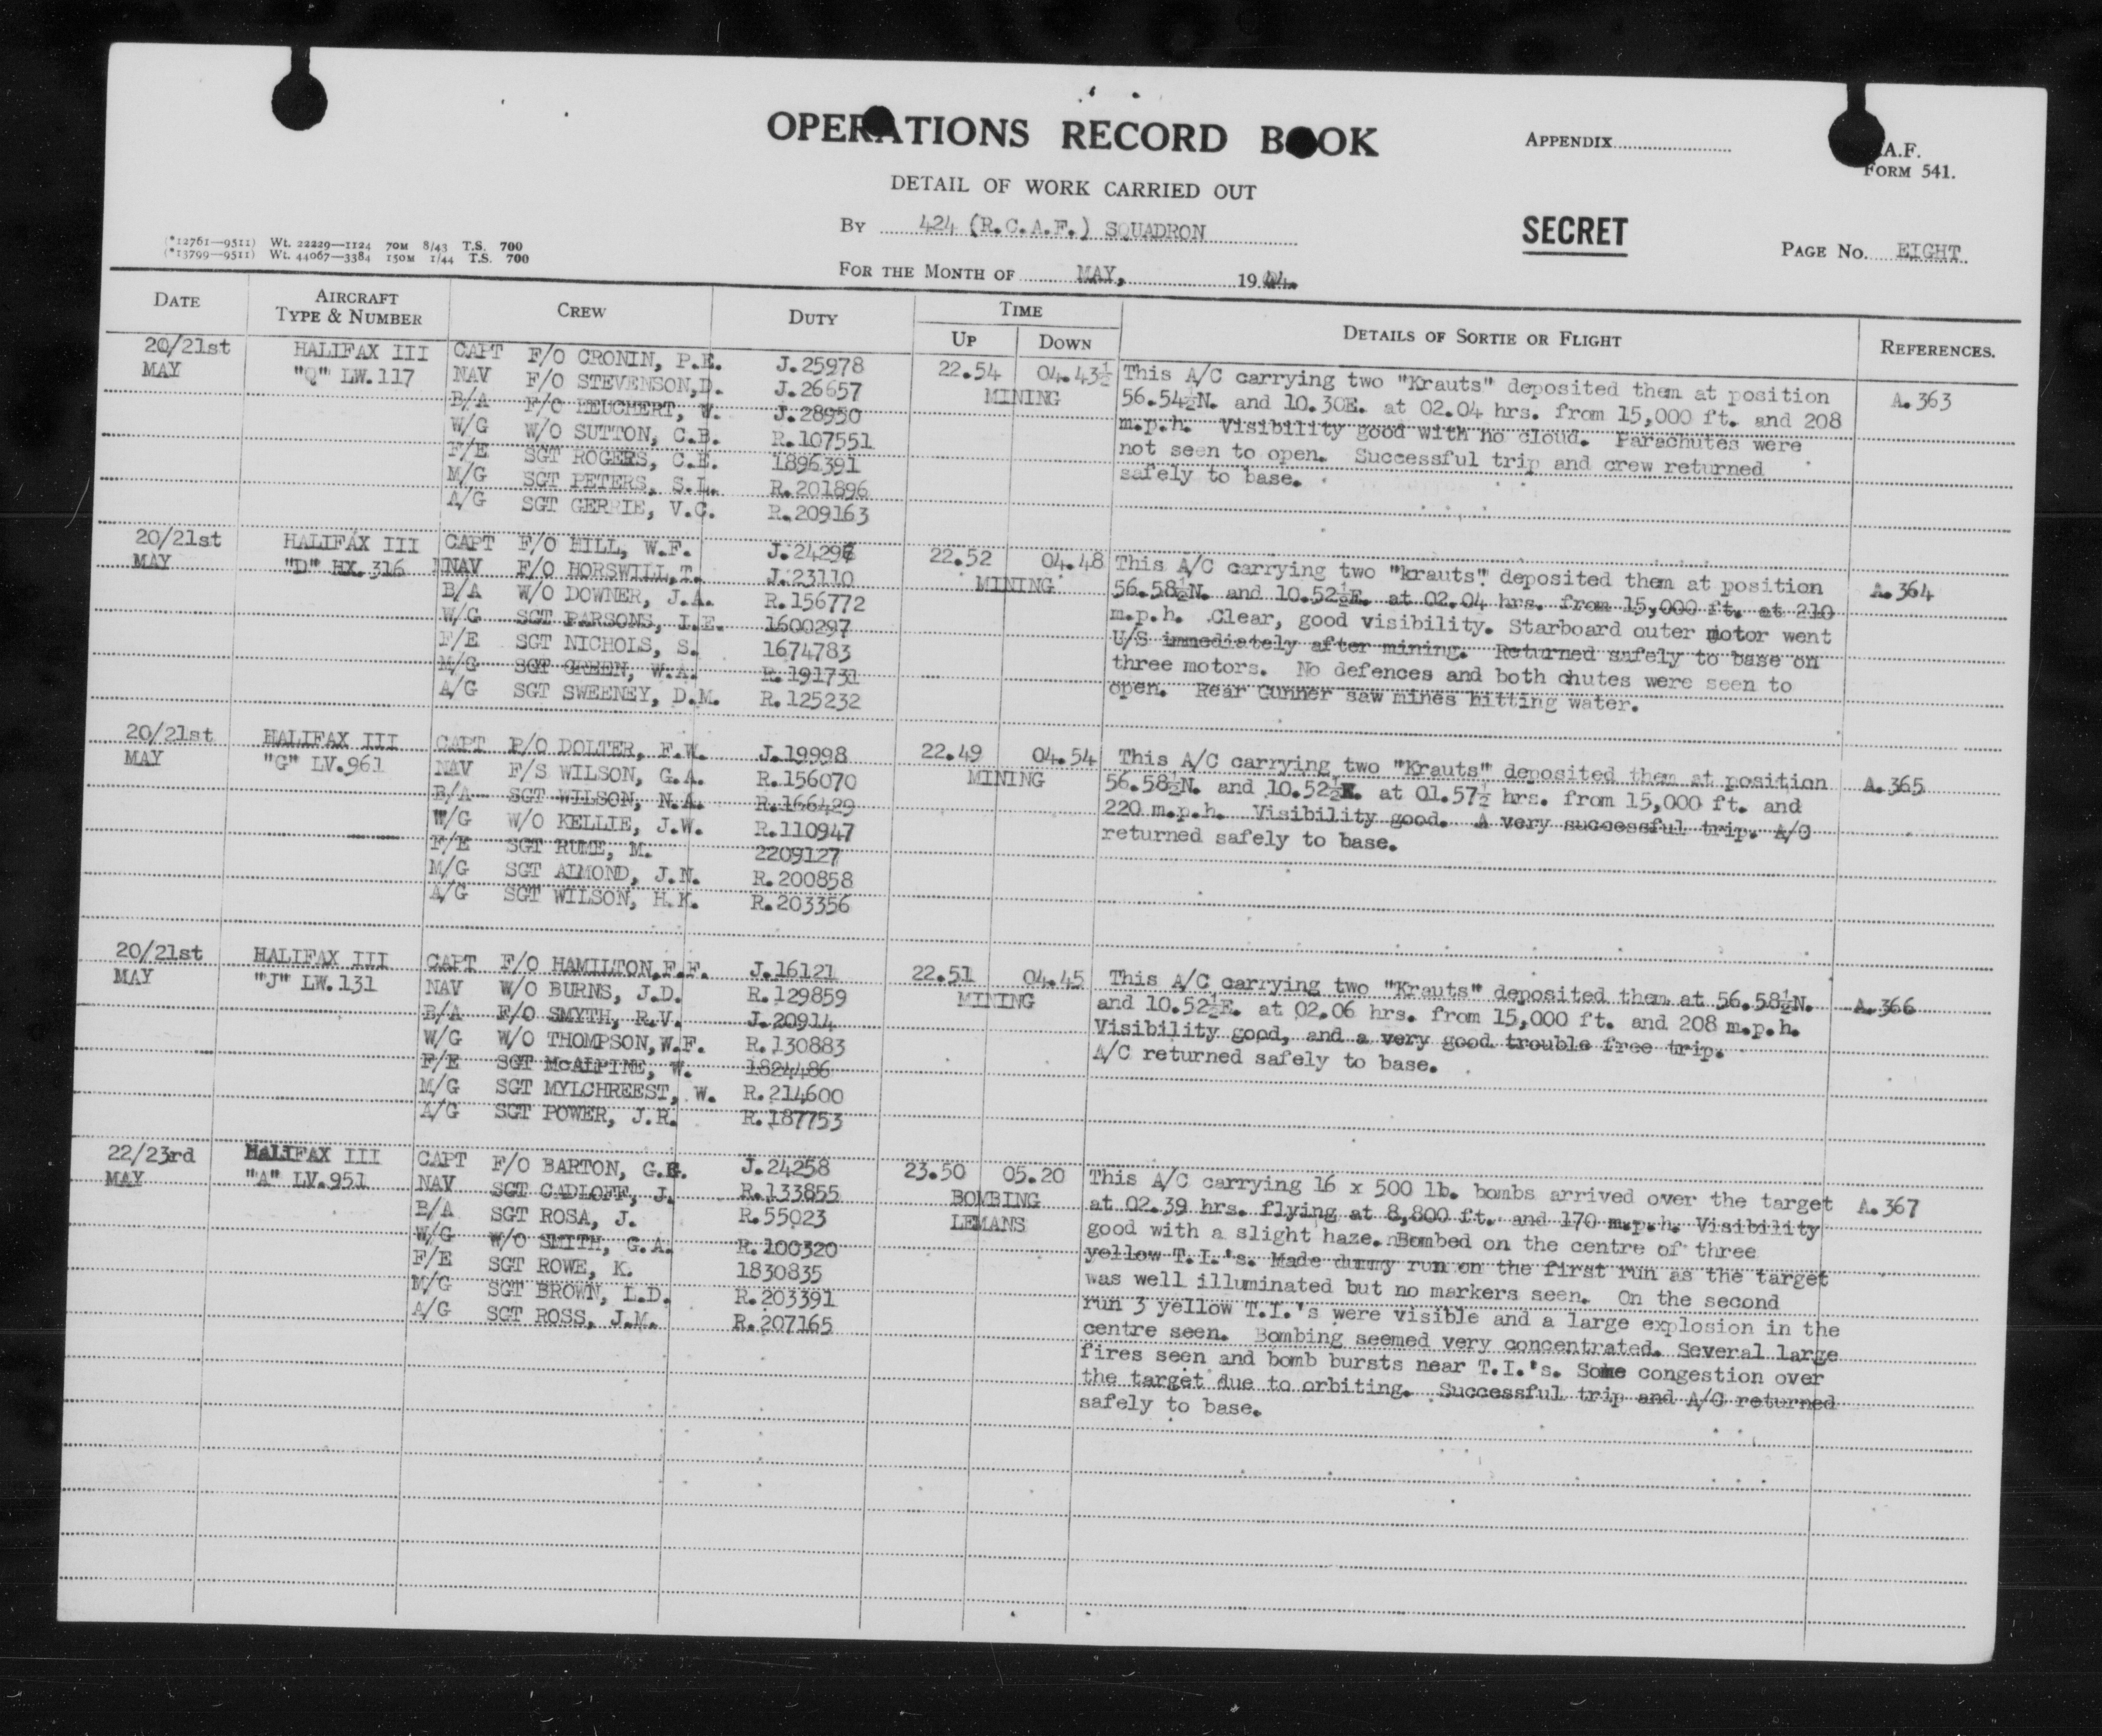 OPERATIONS RECORD BOOK
APPENDIX
A.F.
FORM 541.
DETAIL OF WORK CARRIED OUT
By 424 (R.C.A.F.) SQUADRON
SECRET
PAGE No. EIGHT
(*12761—9511) Wt. 22229—1124 70M 8/43 T.S. 700
(*13799—9511) Wt. 44067—3384 150M 1/44 T.S. 700
FOR THE MONTH OF MAY, 1944.
DATE
AIRCRAFT TYPE & NUMBER
CREW
DUTY
TIME
UP
DOWN
DETAILS OF SORTIE OR FLIGHT
REFERENCES.
20/21st MAY
HALIFAX III
"Q" LW.117
CAPT F/O CRONIN, P.E. J.25978
NAV F/O STEVENSON,D. J.26657
B/A F/O PEUCHERT, W. J.28950
W/G W/O SUTTON, C.B. R.107551
F/E SGT ROGERS, C.E. 1896391
M/G SGT PETERS, S.L. R.201896
A/G SGT GERRIE, V.C. R.209163
22.54 04.43½
MINING
This A/C carrying two "Krauts" deposited them at position
56.54½N. and 10.30E. at 02.04 hrs. from 15,000 ft. and 208
m.p.h. Visibility good with no cloud. Parachutes were
not seen to open. Successful trip and crew returned
safely to base.
A.363
20/21st MAY
HALIFAX III
"D" HX.316
CAPT F/O HILL, W.F. J.24297
NAV F/O HORSWILL,T. J.23110
B/A W/O DOWNER, J.A. R.156772
W/G SGT PARSONS, I.E. 1600297
F/E SGT NICHOLS, S. 1674783
M/G SGT GREEN, W.A. R.191731
A/G SGT SWEENEY, D.M. R.125232
22.52 04.48
MINING
This A/C carrying two "krauts" deposited them at position
56.58½N. and 10.52½E. at 02.04 hrs. from 15,000 ft. at 210
m.p.h. Clear, good visibility. Starboard outer motor went
U/S immediately after mining. Returned safely to base on
three motors. No defences and both chutes were seen to
open. Rear Gunner saw mines hitting water.
A.364
20/21st MAY
HALIFAX III
"G" LV.961
CAPT P/O DOLTER, F.W. J.19998
NAV F/S WILSON, G.A. R.156070
B/A SGT WILSON, N.A. R.166429
W/G W/O KELLIE, J.W. R.110947
F/E SGT RUME, M. 2209127
M/G SGT ALMOND, J.N. R.200858
A/G SGT WILSON, H.K. R.203356
22.49 04.54
MINING
This A/C carrying two "Krauts" deposited them at position
56.58½N. and 10.52½E. at 01.57½ hrs. from 15,000 ft. and
220 m.p.h. Visibility good. A very successful trip. A/C
returned safely to base.
A.365
20/21st MAY
HALIFAX III
"J" LW.131
CAPT F/O HAMILTON,F.F. J.16121
NAV W/O BURNS, J.D. R.129859
B/A F/O SMYTH, R.V. J.20914
W/G W/O THOMPSON,W.F. R.130883
F/E SGT McALPINE, W. 1824486
M/G SGT MYLCHREEST, W. R.214600
A/G SGT POWER, J.R. R.187753
22.51 04.45
MINING
This A/C carrying two "Krauts" deposited them at 56.58½N.
and 10.52½E. at 02.06 hrs. from 15,000 ft. and 208 m.p.h.
Visibility good, and a very good trouble free trip.
A/C returned safely to base.
A.366
22/23rd MAY
HALIFAX III
"A" LV.951
CAPT F/O BARTON, G.G. J.24258
NAV SGT CADLOFF, J. R.133855
B/A SGT ROSA, J. R.55023
W/G W/O SMITH, G.A. R.100320
F/E SGT ROWE, K. 1830835
M/G SGT BROWN, L.D. R.203391
A/G SGT ROSS, J.M. R.207165
23.50 05.20
BOMBING
LEMANS
This A/C carrying 16 x 500 lb. bombs arrived over the target
at 02.39 hrs. flying at 8,800 ft. and 170 m.p.h. Visibility
good with a slight haze. Bombed on the centre of three
yellow T.I.'s. Made dummy run on the first run as the target
was well illuminated but no markers seen. On the second
run 3 yellow T.I.'s were visible and a large explosion in the
centre seen. Bombing seemed very concentrated. Several large
fires seen and bomb bursts near T.I.'s. Some congestion over
the target due to orbiting. Successful trip and A/C returned
safely to base.
A.367